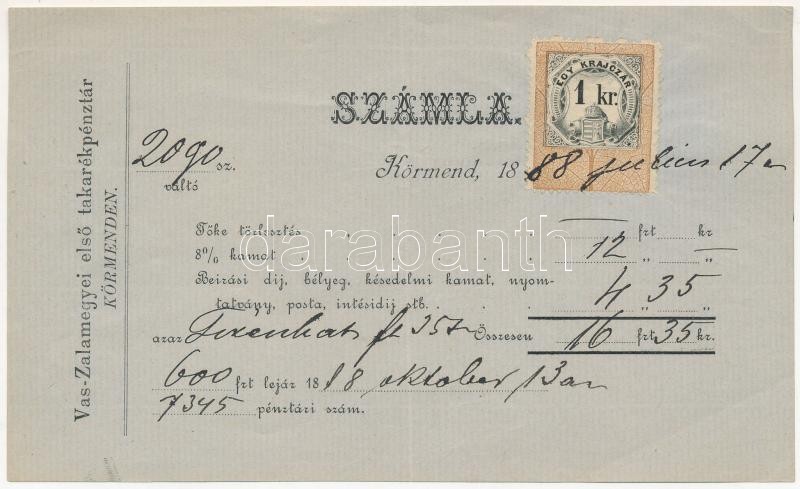 Vas-Zalamegyei első takarékpénztár
KÖRMENDEN.
SZÁMLA.
EGY KRAJCZÁR
1 kr.
2090 sz.
váltó
Körmend, 1888 julius 17 én
Tőke törlesztés . . . . — frt — kr
8% kamat . . . . 12 „ — „
Beirási dij, bélyeg, késedelmi kamat, nyom-
tatvány, posta, intésidij stb. . . . 4 „ 35 „
azaz Tizenhat ft 35 Összesen 16 frt 35 kr.
600 frt lejár 1888 oktober 13 án
7345 pénztári szám.
darabanth